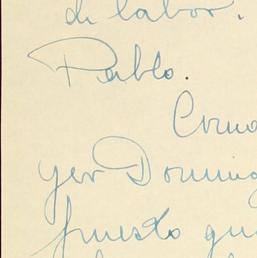 de labor.
Pablo.
Como
yer Doming
puesto que